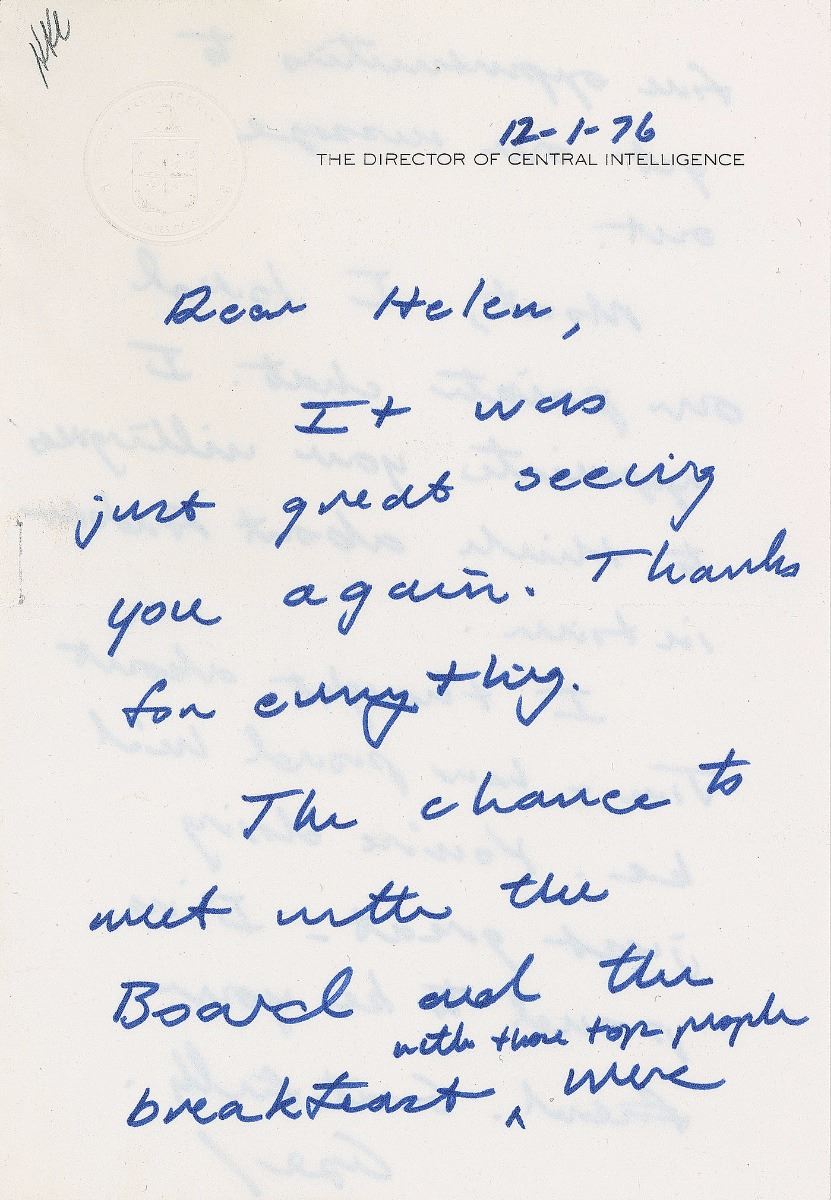 12-1-76
THE DIRECTOR OF CENTRAL INTELLIGENCE
Dear Helen,
It was
just great seeing
you again. Thanks
for everything.
The chance to
meet with the
Board and the
with those top people
breakfast ^ were